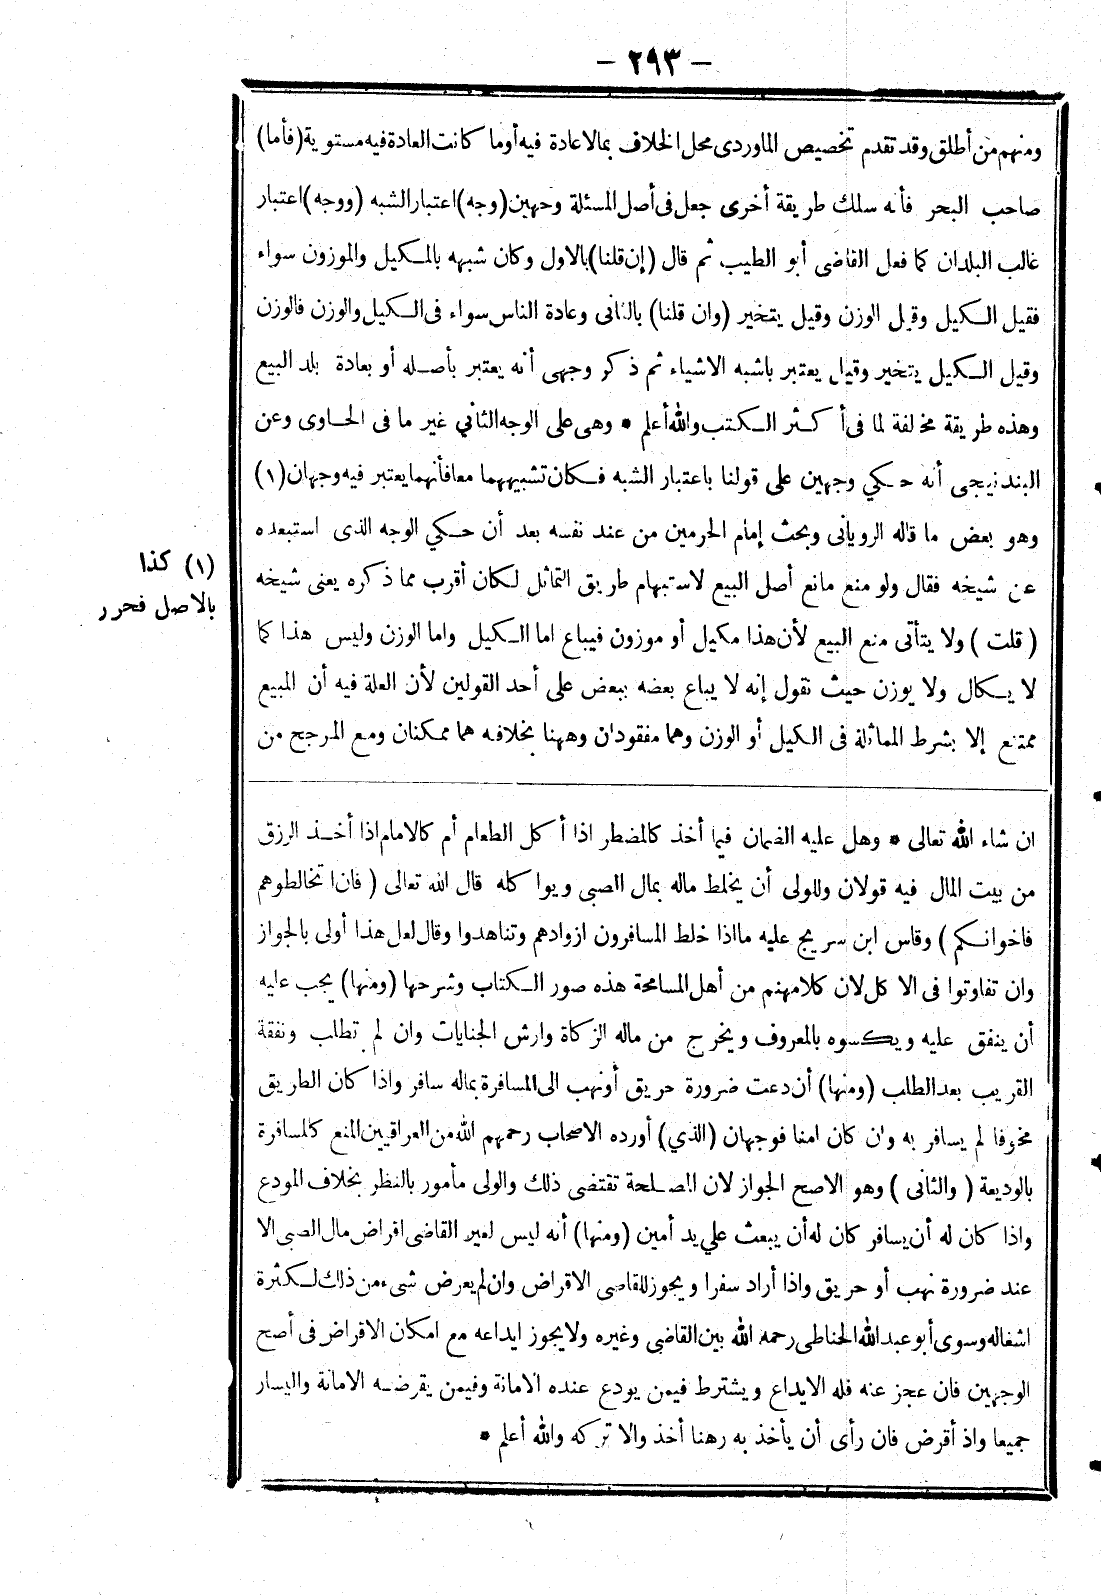 - ٢٩٣ -
ومنهم من أطلق وقد تقدم تخصيص الماوردى محل الخلاف بما لا عادة فيه أوما كانت العادة فيه مستوية (فأما)
صاحب البحر فأنه سلك طريقة أخرى جعل فى أصل المسئلة وجهين (وجه) اعتبار الشبه (ووجه) اعتبار
غالب البلدان كما فعل القاضى أبو الطيب ثم قال (إن قلنا) بالاول وكان شبهه بالمكيل والموزون سواء
فقيل الكيل وقيل الوزن وقيل يتخير (وان قلنا) بالثانى وعادة الناس سواء فى الكيل والوزن فالوزن
وقيل الكيل يتخير وقيل يعتبر باشبه الاشياء ثم ذكر وجهى أنه يعتبر بأصله أو بعادة بلد البيع
وهذه طريقة مخالفة لما فى أكثر الكتب والله أعلم * وهى على الوجه الثاني غير ما فى الحاوى وعن
البندنيجى أنه حكي وجهين على قولنا باعتبار الشبه فكان تشبيههما معافأنهما يعتبر فيه وجهان (١)
وهو بعض ما قاله الرويانى وبحث إمام الحرمين من عند نفسه بعد أن حكي الوجه الذى استبعده
عن شيخه فقال ولو منع مانع أصل البيع لاستبهام طريق التماثل لكان أقرب مما ذكره يعنى شيخه
(قلت) ولا يتأتى منع البيع لأن هذا مكيل أو موزون فيباع اما الكيل واما الوزن وليس هذا كما
لا يكال ولا يوزن حيث نقول إنه لا يباع بعضه ببعض على أحد القولين لأن العلة فيه أن المبيع
ممتنع إلا بشرط المماثلة فى الكيل أو الوزن وهما مفقودان وههنا بخلافه هما ممكنان ومع المرجح من
(١) كذا
بالاصل فحرر
ان شاء الله تعالى * وهل عليه الضمان فيما أخذ كالمضطر اذا أكل الطعام أم كالامام اذا أخذ الرزق
من بيت المال فيه قولان وللولى أن يخلط ماله بمال الصبى ويواكله قال الله تعالى (فان تخالطوهم
فاخوانكم) وقاس ابن سريج عليه مااذا خلط المسافرون ازوادهم وتناهدوا وقال لعل هذا أولى بالجواز
وان تفاوتوا فى الا كل لان كلامهنم من أهل المسامحة هذه صور الكتاب وشرحها (ومنها) يجب عليه
أن ينفق عليه ويكسوه بالمعروف ويخرج من ماله الزكاة وارش الجنايات وان لم تطلب ونفقة
القريب بعد الطلب (ومنها) أن دعت ضرورة حريق أونهب الى المسافرة بماله سافر واذا كان الطريق
مخوفا لم يسافر به وان كان امنا فوجهان (الذي) أورده الاصحاب رحمهم الله من العراقيين المنع كالمسافرة
بالوديعة (والثانى) وهو الاصح الجواز لان المصلحة تقتضى ذلك والولى مأمور بالنظر بخلاف المودع
واذا كان له أن يسافر كان له أن يبعث علي يد أمين (ومنها) أنه ليس لغير القاضى اقراض مال الصبى الا
عند ضرورة نهب أو حريق واذا أراد سفرا ويجوز للقاضى الاقراض وان لم يعرض شىء من ذلك لكثرة
اشغاله وسوى أبوعبد الله الحناطى رحمه الله بين القاضى وغيره ولا يجوز ايداعه مع امكان الاقراض فى أصح
الوجهين فان عجز عنه فله الايداع ويشترط فيمن يودع عنده الامانة وفيمن يقرضه الامانة واليسار
جميعا واذ أقرض فان رأى أن يأخذ به رهنا أخذ والا تركه والله أعلم *